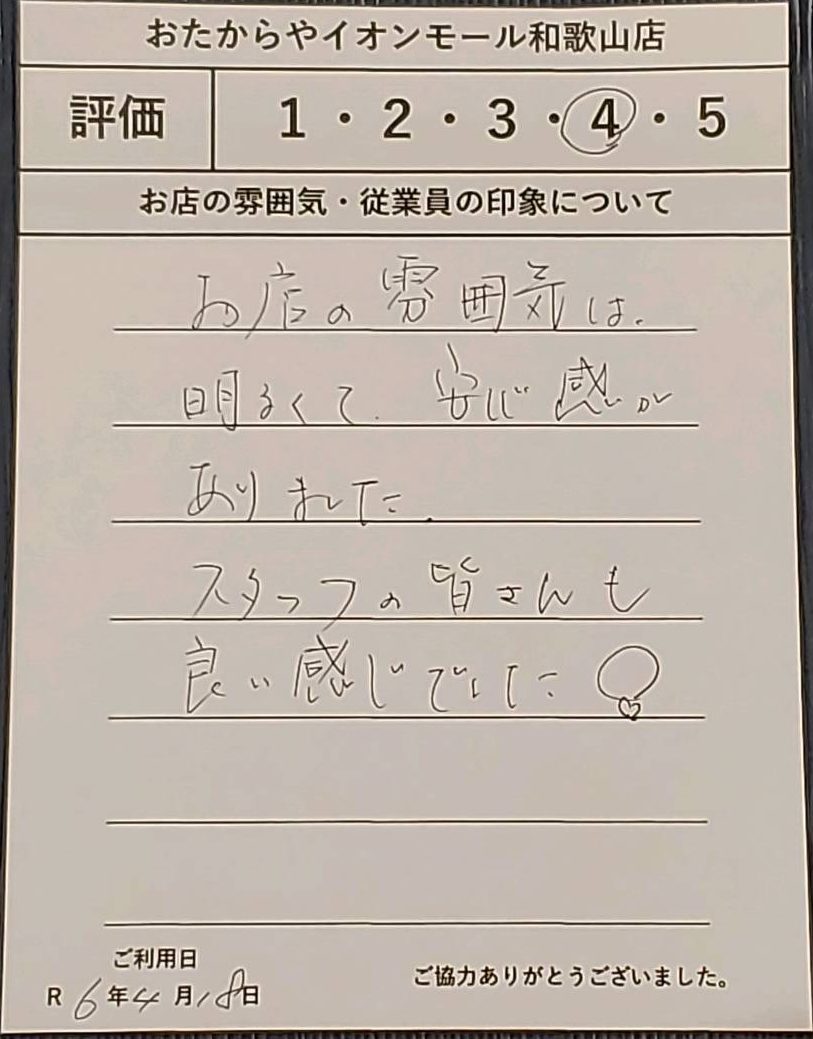 おたからやイオンモール和歌山店
評価 1・2・3・4・5
お店の雰囲気・従業員の印象について
お店の雰囲気は、
明るくて、安心感が
ありました。
スタッフの皆さんも
良い感じでした
ご利用日
ご協力ありがとうございました。
R6年4月18日